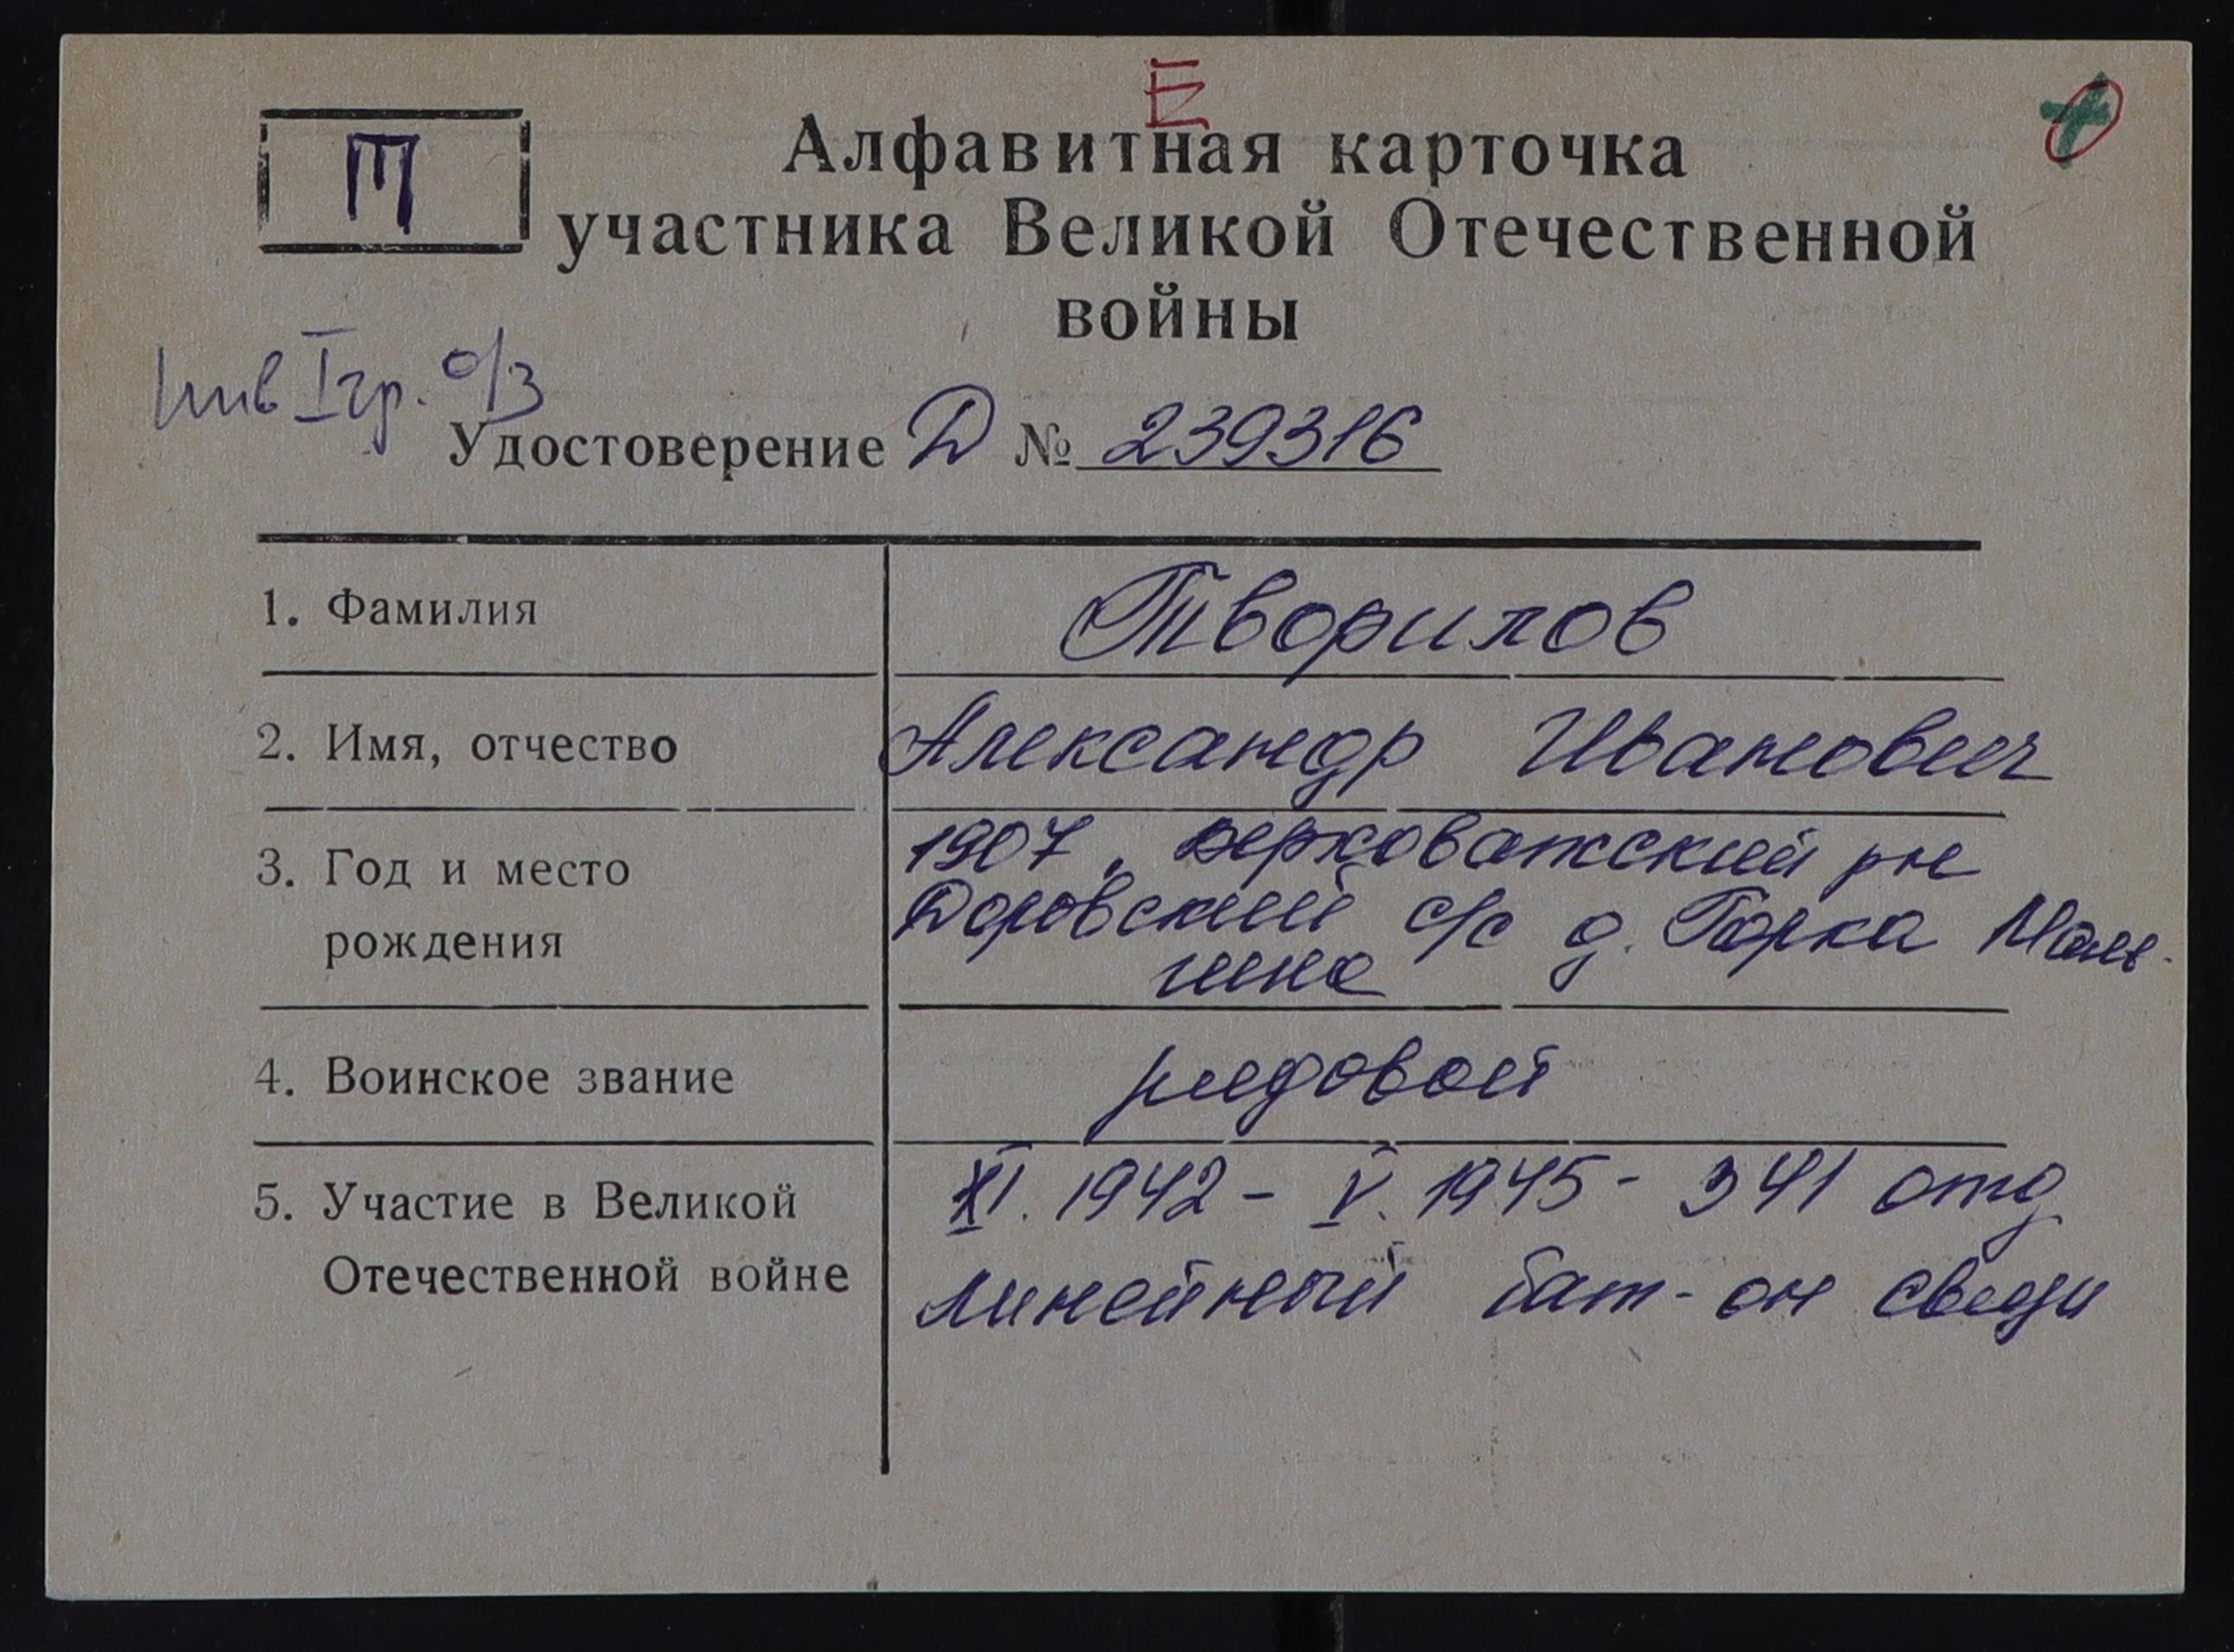 Е
Т
Алфавитная карточка
участника Великой Отечественной
войны
Инв I гр. о/з
Удостоверение Д № 239316
1. Фамилия
Творилов
2. Имя, отчество
Александр Иванович
3. Год и место
рождения
1907, Верховажский р-н
Доровский с/с д. Горка
4. Воинское звание
рядовой
5. Участие в Великой
Отечественной войне
XI. 1942 - V. 1945 - 341 отд
линейный бат-он связи